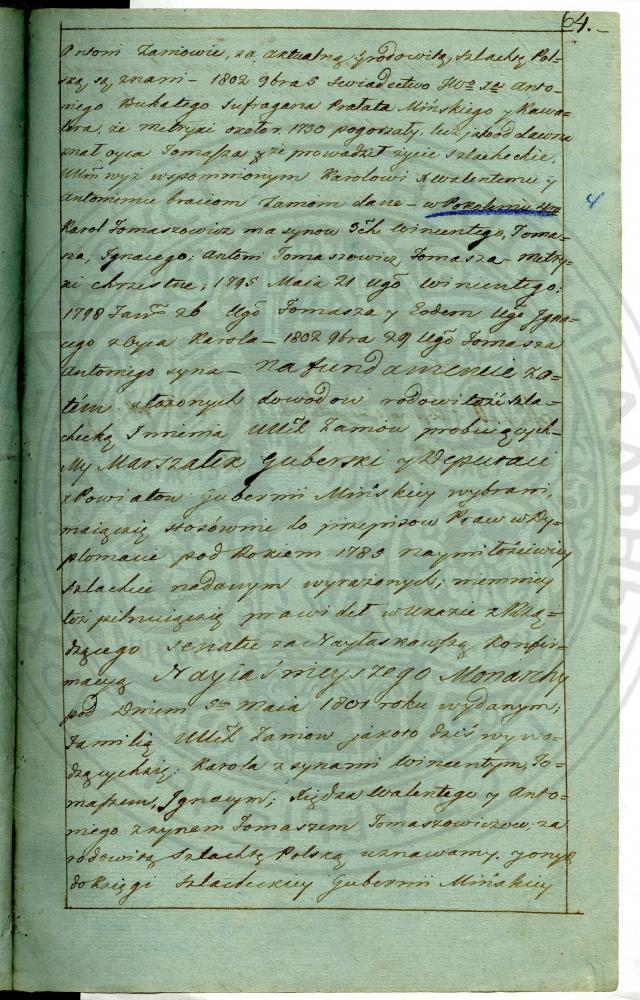 64.
Antoni Zamowie, za aktualną y rodowitą szlachtę Pol-
ską są znani – 1802 9bra 5 swiadectwo JWo Xa Anto-
niego Dukałego Sufragana Prałata Mińskiego y Kawa-
lera, że metryki około r. 1730 pogorzały, lecz iż od dawna
znał oyca Tomasza że prowadził życie szlacheckie,
wyż wspomnionym Karolowi X Walentemu y
Antoniemu braciom Zamom dane – w Pokoleniu 4m
4
Karol Tomaszowicz ma synow 3ch Wincentego, Toma-
sza, Ignacego; Antoni Tomaszowicz, Tomasza – metry-
ki chrzestne; 1795 Maia 21 Ugo Wincentego;
1798 26 Ugo Tomasza y Eodem Ugo Igna-
cego z Oyca Karola – 1802 9bra 29 Ugo Tomasza
Antoniego syna – na fundamencie za-
tém złożonych dowodow rodowitość szla-
checką Imienia Zamow probuiących
My Marszałek Guberski y Deputaci
z Powiatow Gubernii Mińskiey wybrani,
maiąc się stosownie do przepisow Praw w Dy-
plomacie pod Rokiem 1785 naymiłościwiey
szlachcie nadanym wyrażonych; niemniey
też pilnuiąc się prawideł w Ukazie z Rzą-
dzącego Senatu za Nayłaskawszą konfir-
macyą Nayiaśnieyszego Monarchy
pod Dniem 5m Maia 1801 roku wydanym;
Familią Zamow jakoto dziś wywo-
dzących się: Karola z synami Wincentym, To-
maszem, Ignacym; Xiędza Walentego y Anto-
niego z synem Tomaszem Tomaszowiczow, za
rodowitą Szlachtę Polską uznawamy, y onych
do Księgi Szlacheckiey Gubernii Mińskiey